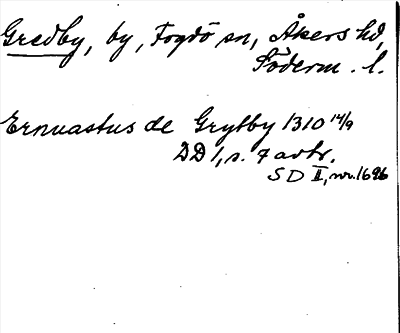 Gredby, by, Fogdö sn, Åkers hd,
Söderm. l.
Ernuastus de Grytby 1310 14/9
DD 1, s. 7 avtr.
SD II, nr. 1696